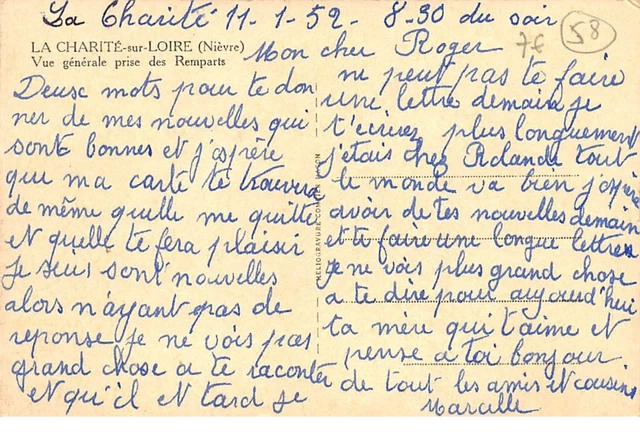 La Charité 11-1-52- 8-30 du soir
58
7€
LA CHARITÉ-sur-LOIRE (Nièvre)
Vue générale prise des Remparts
Mon cher Roger
Deuse mots pour te don
ner de mes nouvelles qui
sont bonnes et j'aspère
qui ma carte te trouvera
de même quelle me quitte
et quelle te fera plaisir
Je suis sont nouvelles
alors n'ayant pas de
reponse je ne vois pas
grand chose a te raconter
et qu'il et tard je
ne peut pas te faire
une lettre demain je
t'ecirez plus longuement
j'etais chez Rolande tout
le monde va bien j'aspère
avoir de tes nouvelles demain
et te faire une longue lettre
je ne vois plus grand chose
a te dire pour aujourd'hui
ta mère qui t'aime et
pense a toi bonjour
de tout les amis et cousins
Marcelle